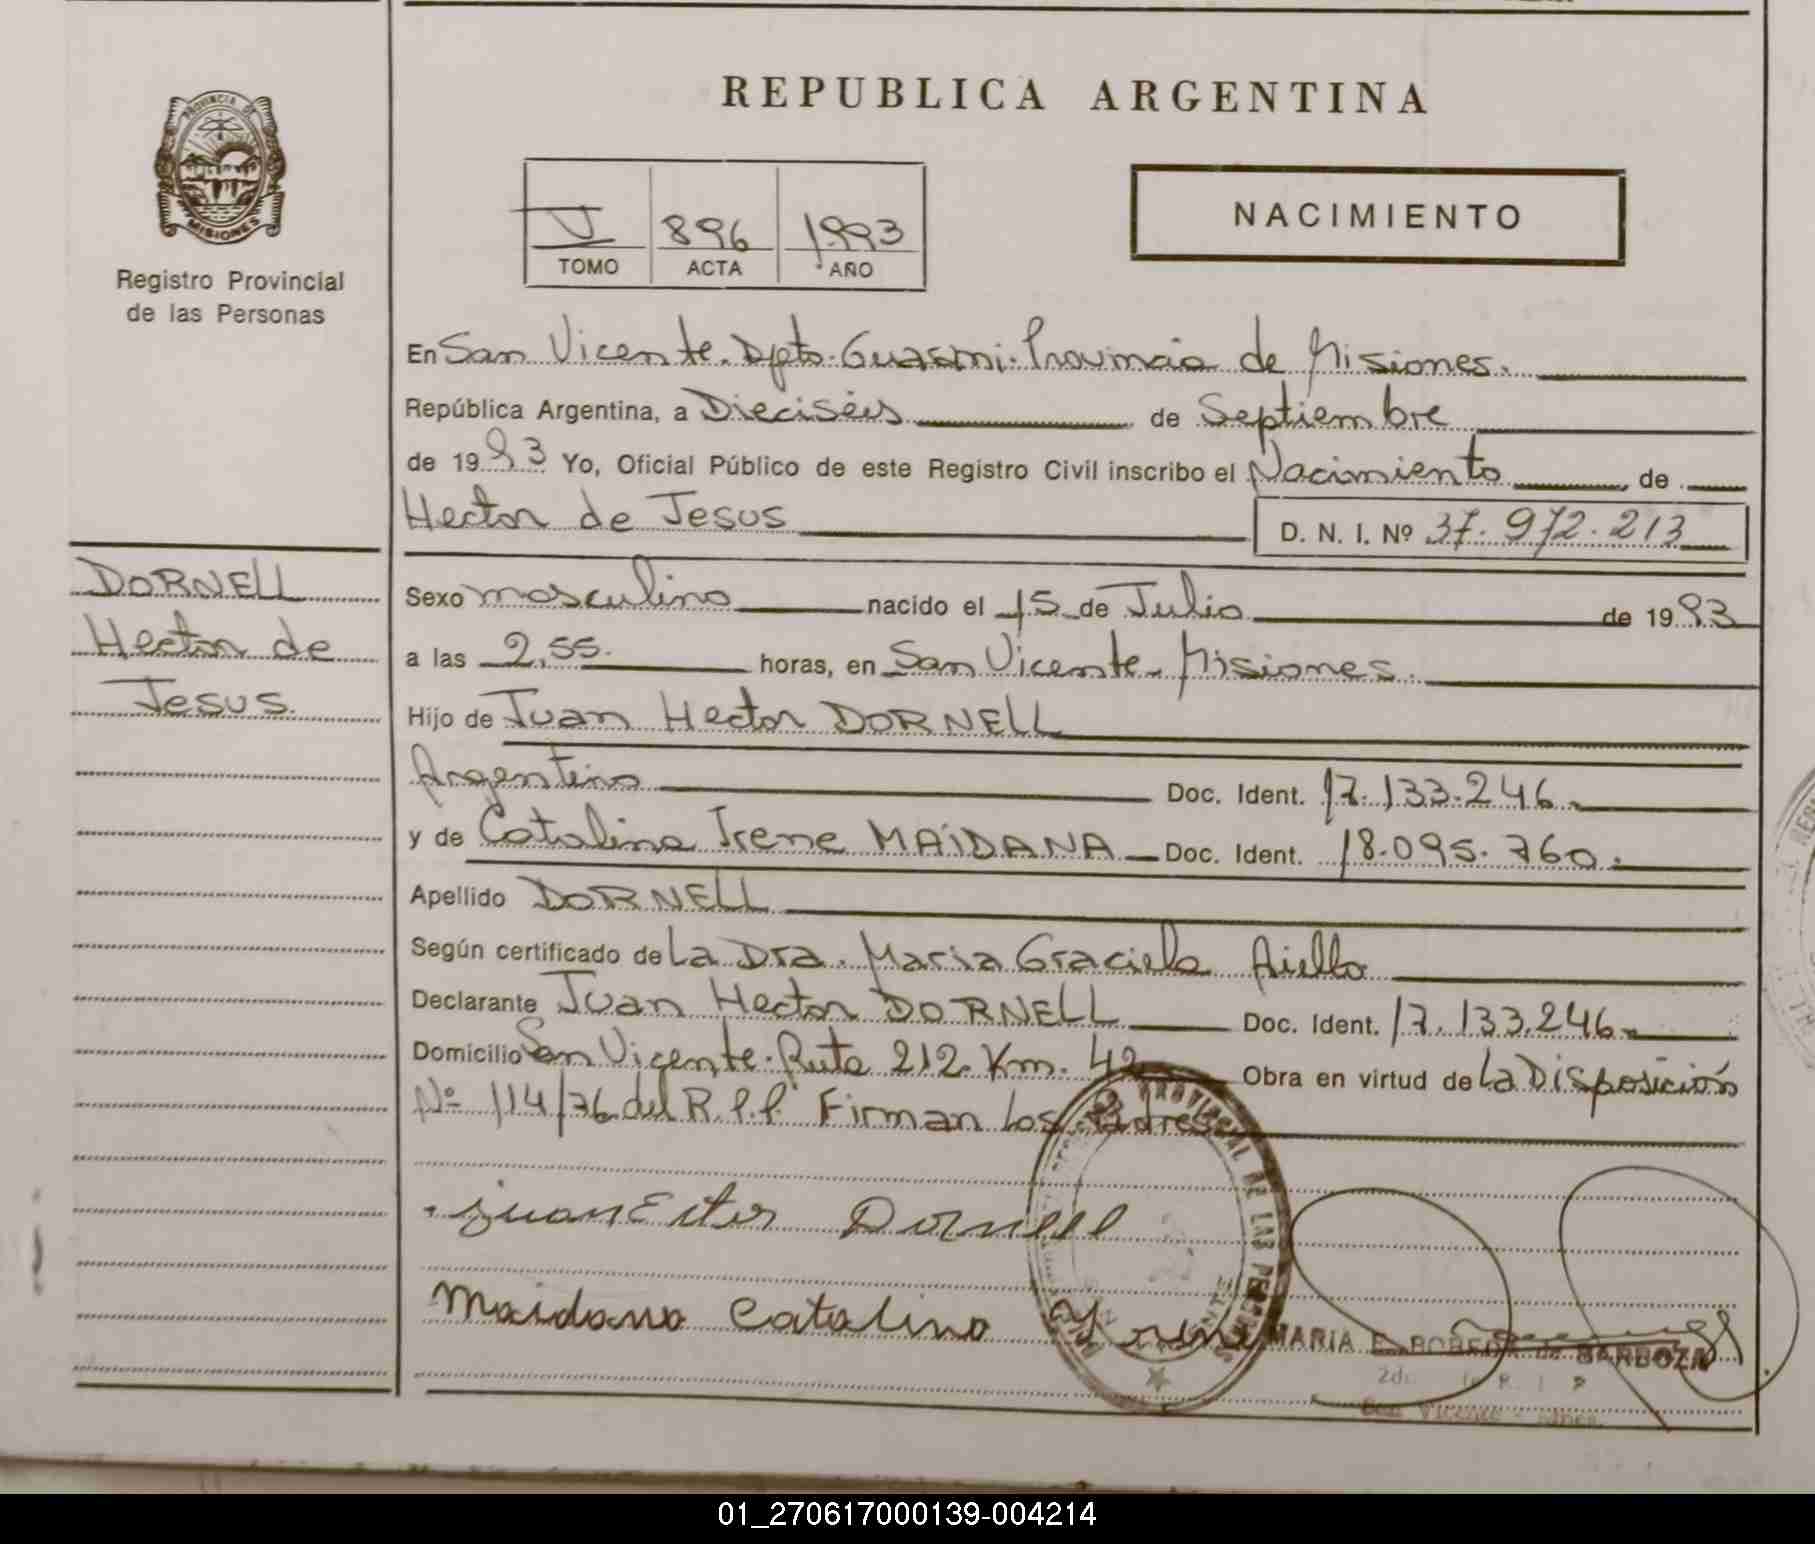 REPUBLICA ARGENTINA
PROVINCIA DE
MISIONES
Registro Provincial
de las Personas
V 896 1993
TOMO ACTA AÑO
NACIMIENTO
En San Vicente. Dpto. Guarani. Provincia de Misiones.
República Argentina, a Dieciséis de Septiembre
de 1993 Yo, Oficial Público de este Registro Civil inscribo el Nacimiento de
Hector de Jesus D. N. I. Nº 37.972.213
DORNELL
Hector de
Jesus.
Sexo masculino nacido el 15 de Julio de 1993
a las 2,55. horas, en San Vicente. Misiones.
Hijo de Juan Hector DORNELL
Argentino Doc. Ident. 17.133.246.
y de Catalina Irene MAIDANA Doc. Ident. 18.095.760.
Apellido DORNELL
Según certificado de La Dra. Maria Graciela Aiello
Declarante Juan Hector DORNELL Doc. Ident. 17.133.246.
Domicilio San Vicente. Ruta 212. Km. 42 Obra en virtud de La Disposición
Nº 114/76 del R.P.P. Firman Los Padres
juan Ector Dornell
Maidana Catalina
PROVINCIAL DE LAS PERSONAS
MARIA E. de BARBOZA
San Vicente - Mnes.
01_270617000139-004214